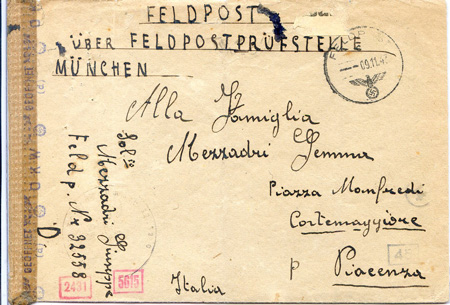 FELDPOST
ÜBER FELDPOSTPRÜFSTELLE
MÜNCHEN
09.11.4
Alla Famiglia
Mezzadri Gemma
Piazza Manfredi
Cortemaggiore
p Piacenza
Italia
Mezzadri Giuseppe
Feldp. Nr 92558
D
2431
5615
4